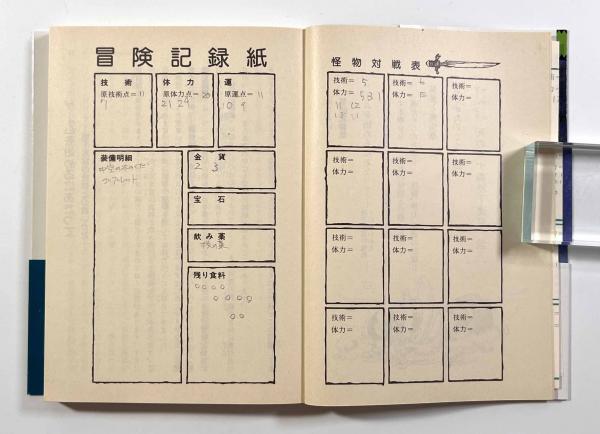 冒険記録紙
技術
原技術点=11
7
体力
原体力点=
21 24
運
原運点=11
10 9
装備明細
金貨
2 3
宝石
飲み薬
残り食料
怪物対戦表
技術= 5
体力= 5 3 1
11 12
技術=
体力=
技術=
体力=
技術=
体力=
技術=
体力=
技術=
体力=
技術=
体力=
技術=
体力=
技術=
体力=
技術=
体力=
技術=
体力=
技術=
体力=